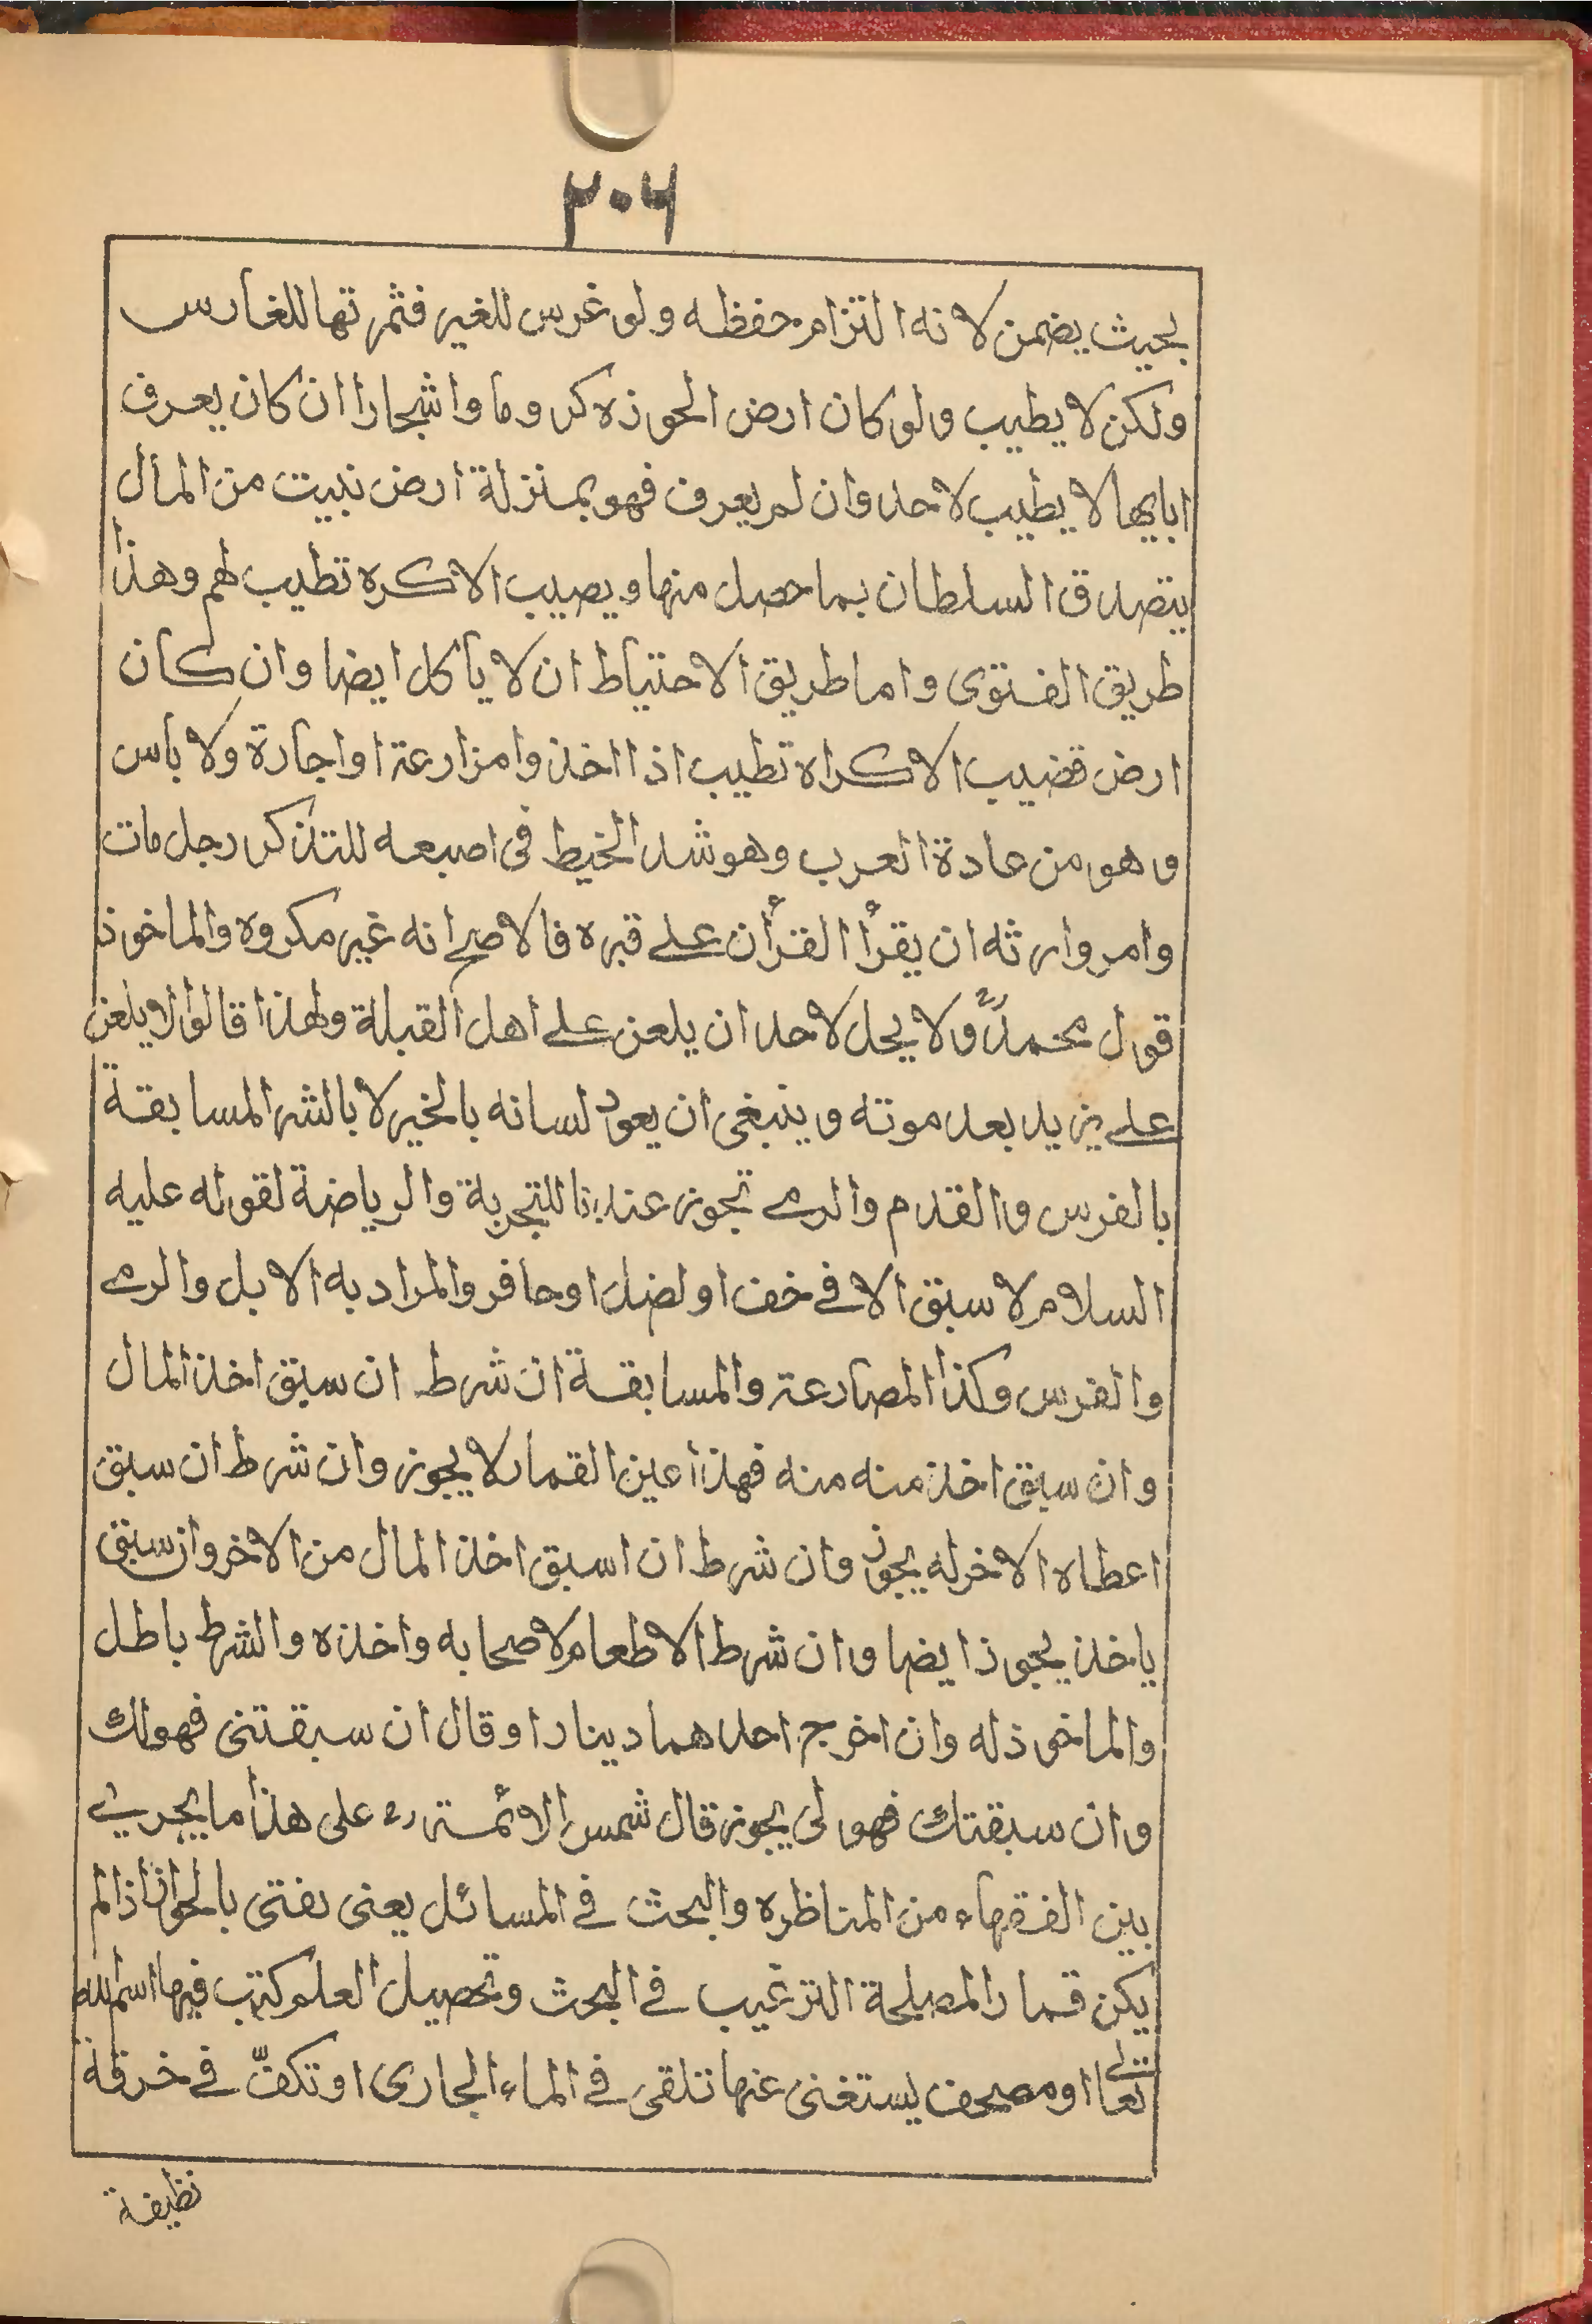 ٢٠٦
بحيث يضمن لانه التزام حفظه ولو غرس للغير فثمرتها للغارس
ولكن لا يطيب ولو كان ارض الحوزه كروما واشجارا ان كان يعرف
ابايها لا يطيب لاحد وان لم يعرف فهو بمنزلة ارض نبيت من المال
يتصدق السلطان بما حصل منها ويصيب الاكره تطيب لهم وهذا
طريق الفتوى واما طريق الاحتياط ان لا يأكل ايضا وان كان
ارض قضيب الاكراه تطيب اذا اخذوا مزارعة او اجارة ولا بأس
وهو من عادة العرب وهو شد الخيط فى اصبعه للتذكر رجل مات
وامر وارثه ان يقرأ القرأن على قبره فالاصح انه غير مكروه والماخوذ
قول محمدؒ ولا يحل لاحد ان يلعن على اهل القبلة ولهذا قالوا لا يلعن
على يزيد بعد موته وينبغى ان يعود لسانه بالخير لا بالشر المسابقة
بالفرس والقدم والرمى تجوز عندنا للتجربة والرياضة لقوله عليه
السلام لا سبق الا فى خف او لضل او حافر والمراد به الابل والرمى
والفرس وكذا المصارعة والمسابقة ان شرط ان سبق اخذ المال
وان سبق اخذ منه منه فهذا عين القمار لا يجوز وان شرط ان سبق
اعطاه الاخر له يجوز وان شرط ان اسبق اخذ المال من الاخر وان سبق
ياخذ يجوز ايضا وان شرط الاطعام لاصحابه واخذه والشرط باطل
والماخوذ له وان اخرج احدهما دينارا وقال ان سبقتنى فهو لك
وان سبقتك فهو لى يجوز قال شمس الائمة رح على هذا ما يجرى
بين الفقهاء من المناظره والبحث فى المسائل يعنى يفتى بالجواز اذا لم
يكن قمارا لمصلحة الترغيب فى البحث وتحصيل العلم كتب فيها اسم الله
تعالى او مصحف يستغنى عنها تلقى فى الماء الجارى او تكفّ فى خرقة
نظيفة